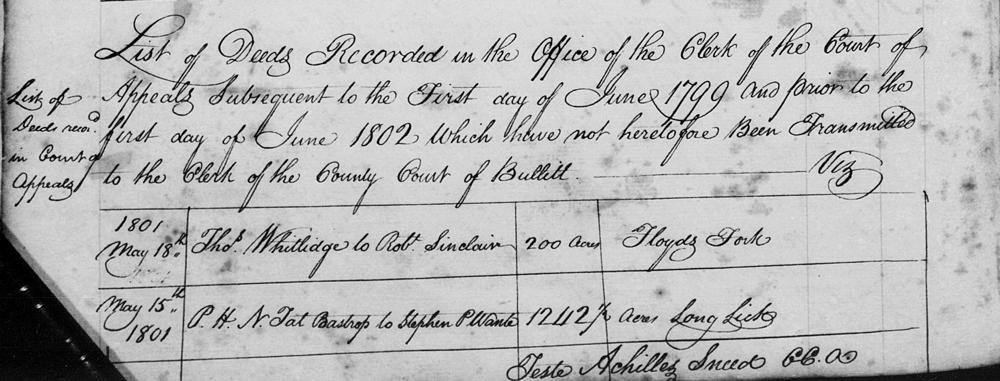 List of Deeds Recorded in the Office of the Clerk of the Court of
Appeals Subsequent to the First day of June 1799 and prior to the
first day of June 1802 which have not heretofore Been Transmitted
to the Clerk of the County Court of Bullitt. Viz
List of
Deeds recor.d
in Court of
Appeals
1801
May 18th Thos. Whitlidge to Robt. Sinclair 200 Acres Floyds Fork
May 15th
1801 P. H. N. Tat Bastrop to Stephen P. Wante 1242½ Acres Long Lick
Teste Achilles Sneed CC.A